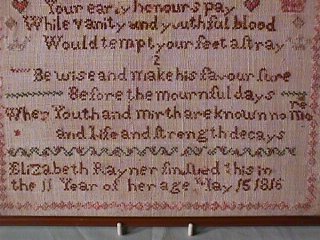 Your early honours pay
While vanity and youthful blood
Would tempt your feet astray
2
Be wise and make his favour sure
Before the mournful days
When Youth and mirth are known no more
and life and strength decays
Elizabeth Rayner finshed this in
the 11 Year of her age May 15 1816